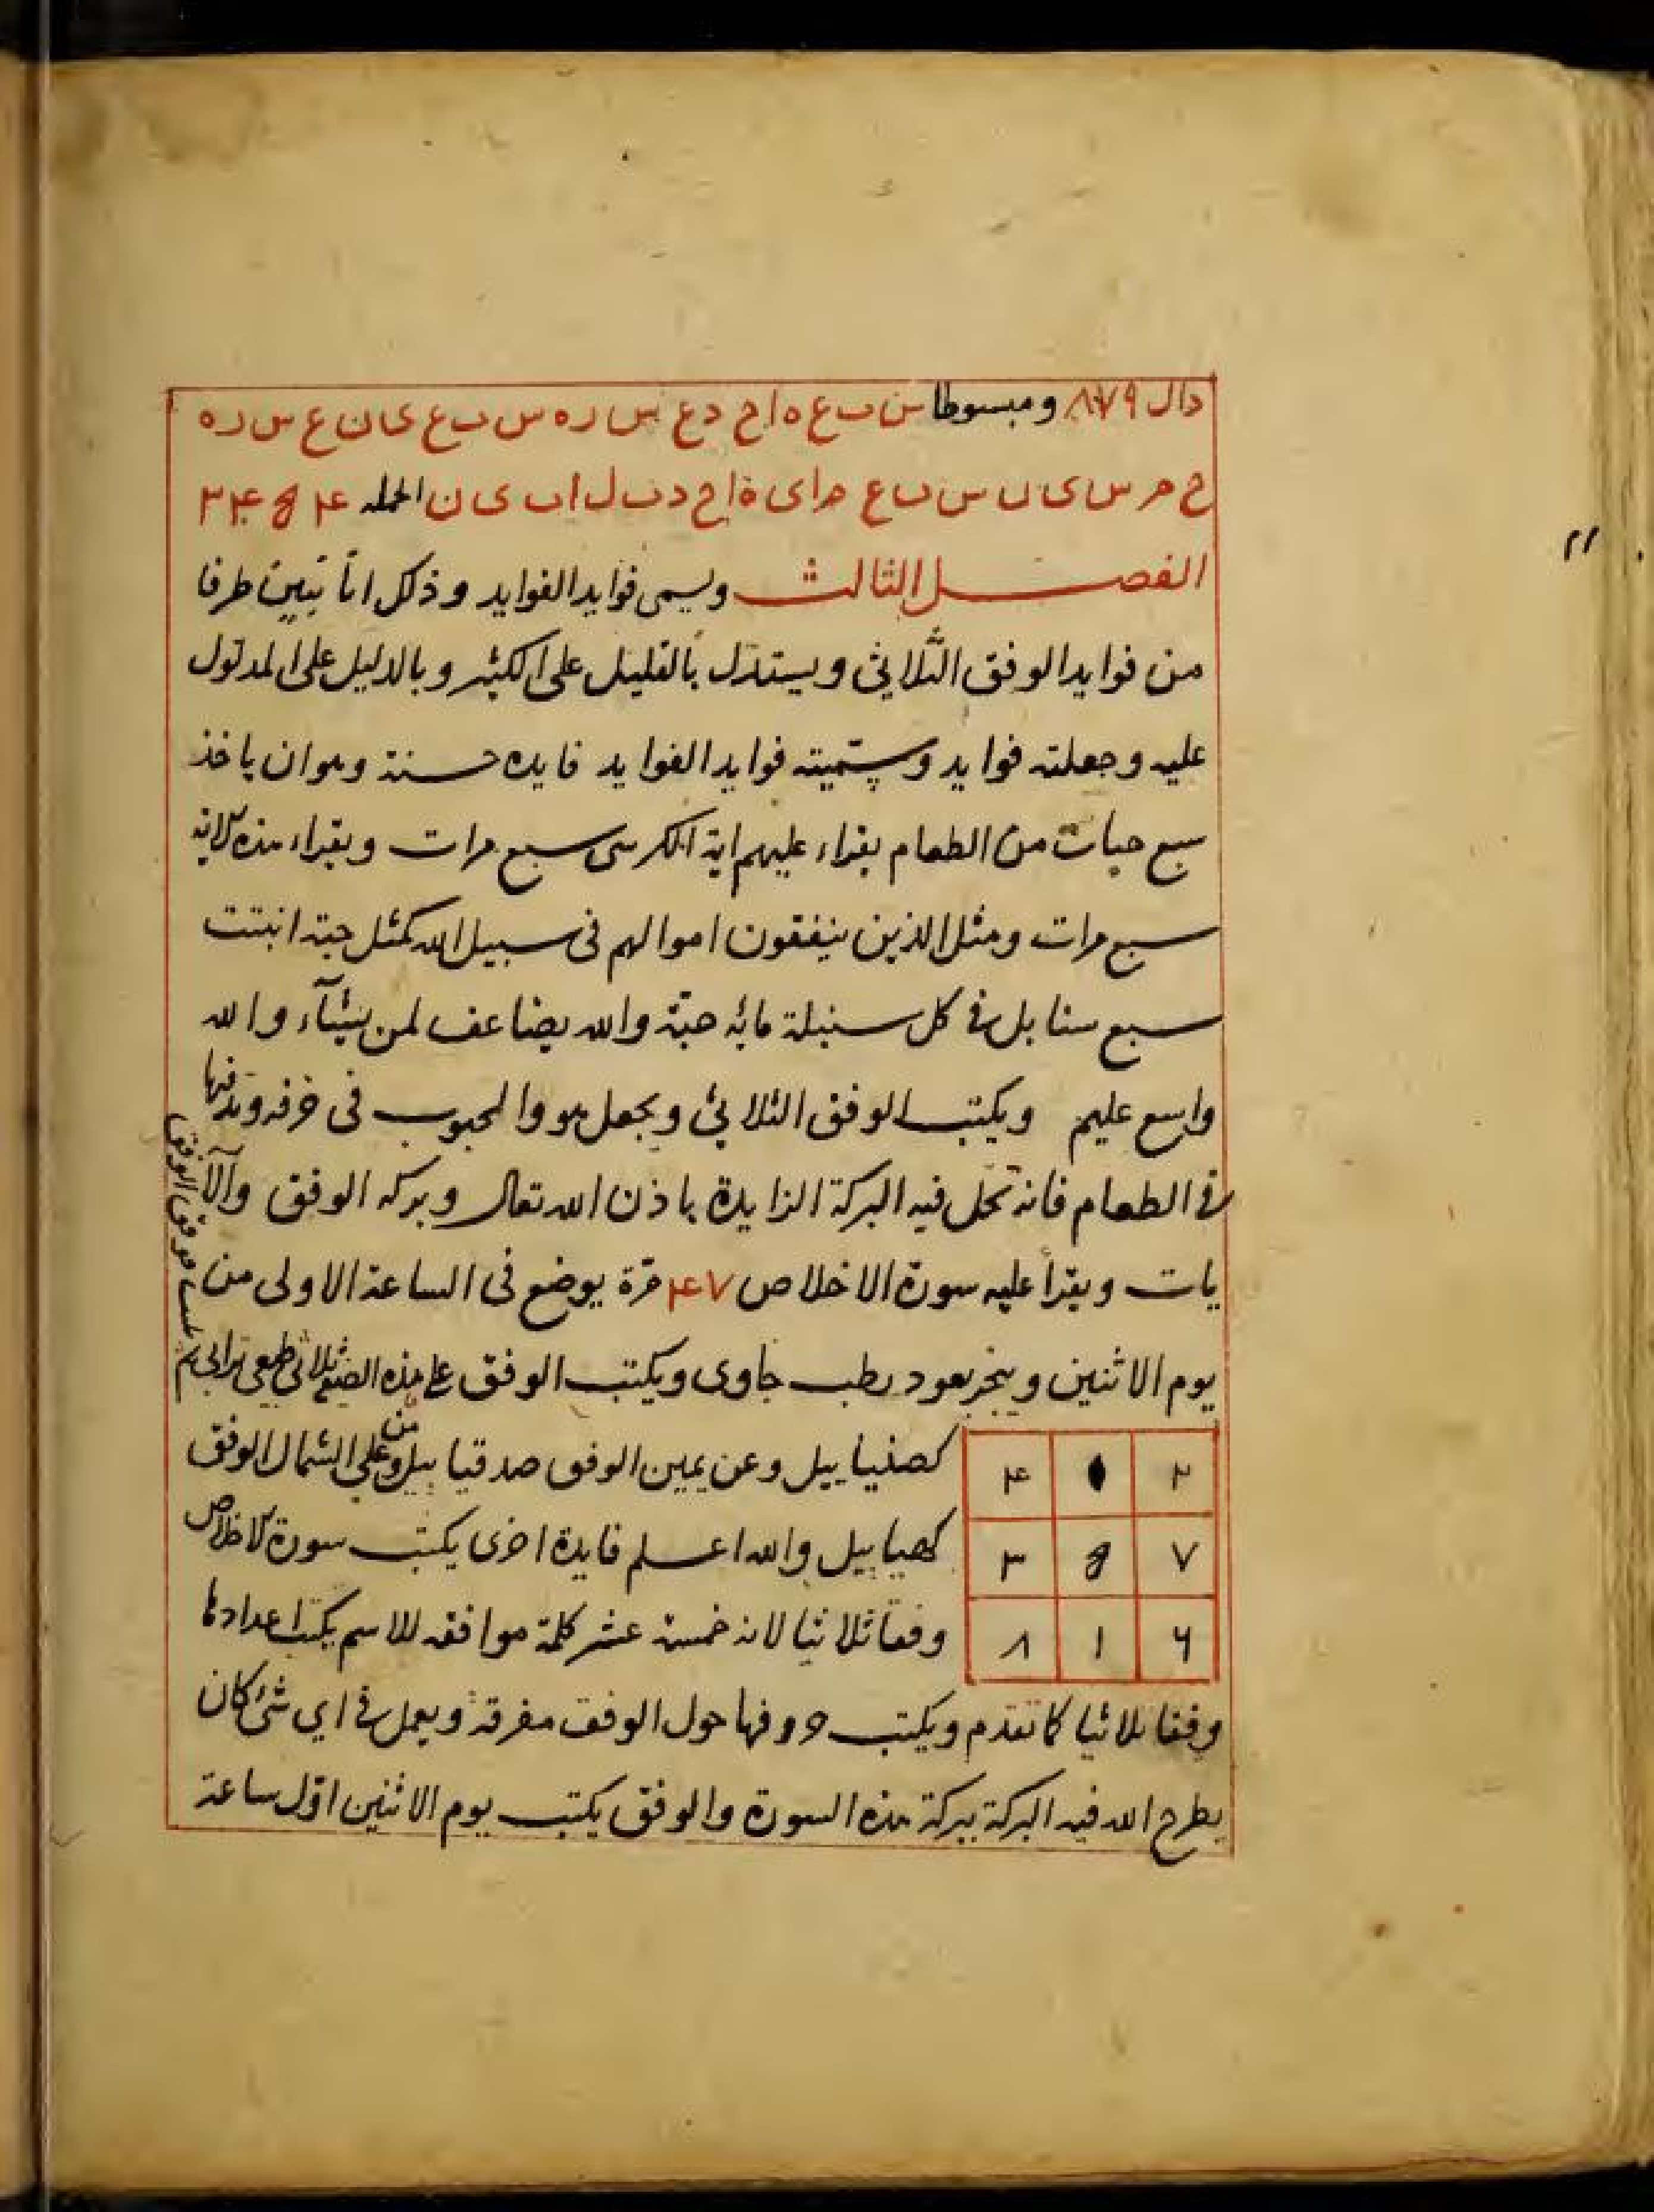 دال ٨٧٩ ومبسوطا س ب ع ه ا ح د ع س ر ه س ب ع ى ا ن ع س ر ه
الجمله ۴ ۵ ۴ ٣
الفصل الثالث ويسمى فوايد الفوايد وذلك انا نبين طرفا
من فوايد الوفق الثلاثي ويستدل بالقليل على الكثير وبالدليل على المدلول
عليه وجعلته فوايد وسميته فوايد الفوايد فايده حسنة وهو ان ياخذ
سبع حبات من الطعام يقراء عليهم اية الكرسى سبع مرات ويقراء هذه الاية
سبع مرات ومثل الذين ينفقون اموالهم فى سبيل الله كمثل حبة انبتت
سبع سنابل فى كل سنبلة ماية حبة والله يضاعف لمن يشآء والله
واسع عليم ويكتب الوفق الثلاثي ويجعل هو والحبوب فى خرقه وتدفنها
فى الطعام فانه تحل فيه البركة الزايدة باذن الله تعالى وبركه الوفق والآ
يات ويقرأ عليه سورة الاخلاص ۴٧ مرة يوضع فى الساعة الاولى من
يوم الاثنين ويبخر بعود رطب جاوى ويكتب الوفق على هذه الصفة ثلاثي طبعى ترابى
فوق الوفق
٢ ♦ ۴
٧ ۵ ٣
٦ ١ ٨
كصنيابيل وعن يمين الوفق صدقيابيل وعلى الشمال من الوفق
كهيابيل والله اعلم فايدة اخرى يكتب سورة الاخلاص
وفقا ثلاثيا لانه خمسة عشر كلمة موافقه للاسم يكتب اعدادها
وفقا ثلاثيا كما تقدم ويكتب حروفها حول الوفق مفرقة ويعمل فى اي شئ كان
يطرح الله فيه البركة ببركة هذه السورة والوفق يكتب يوم الاثنين اول ساعة